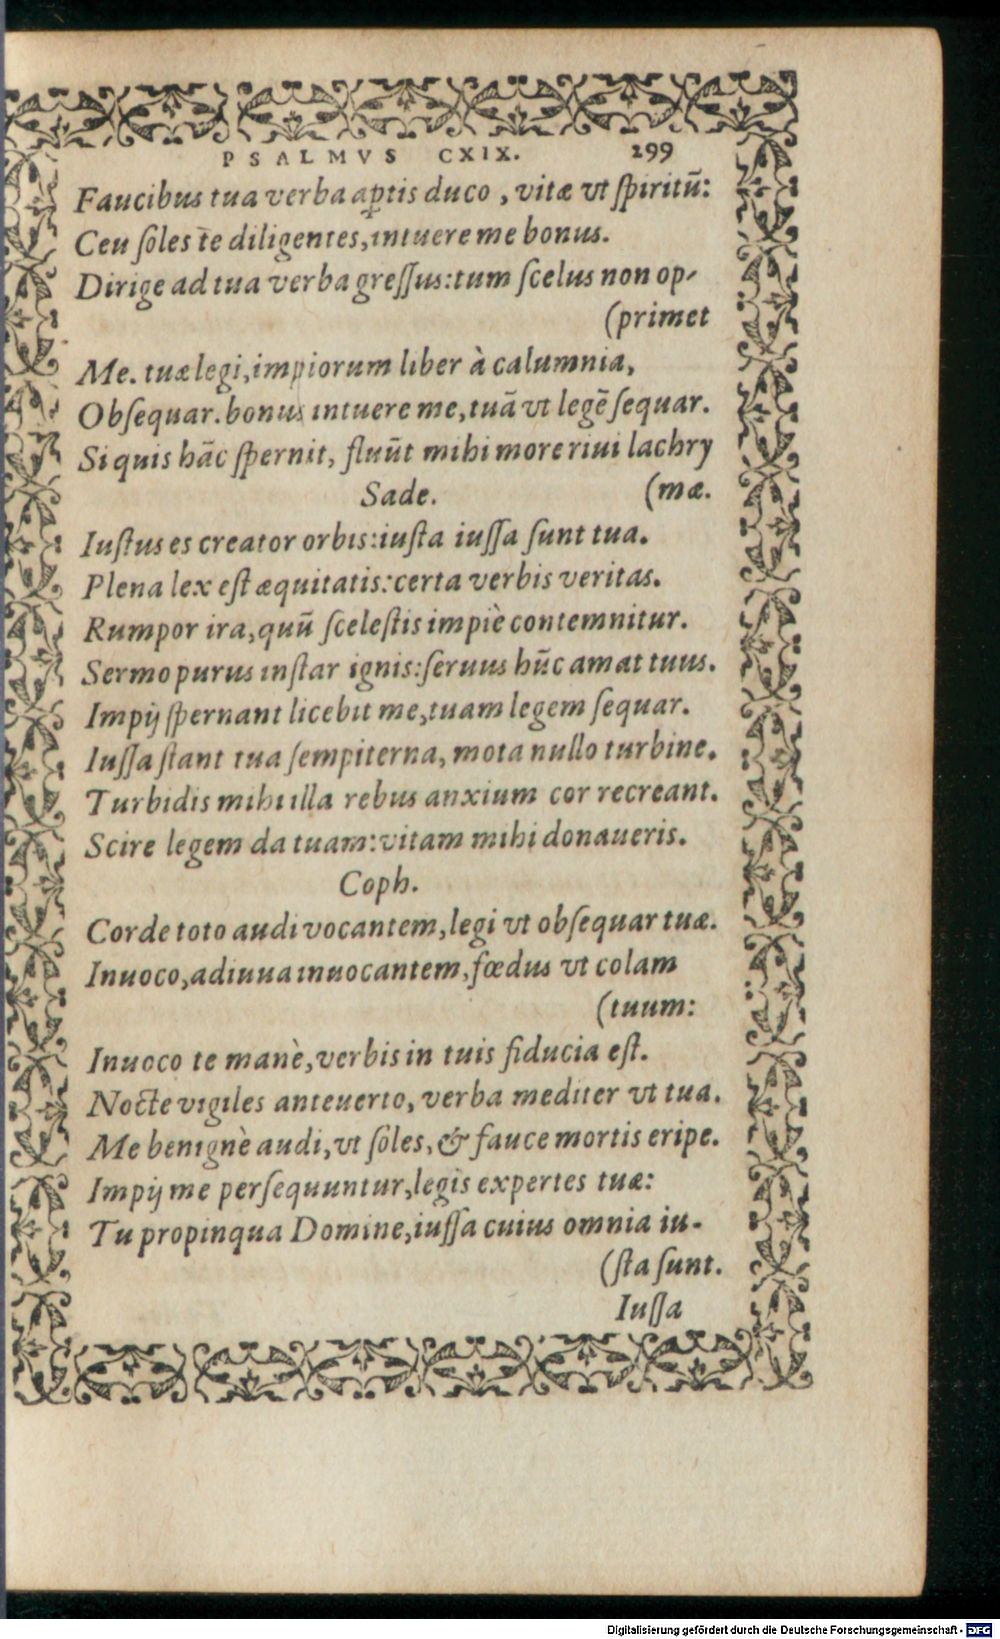 PSALMVS CXIX. 299
Faucibus tua verba aꝑtis duco, vitæ vt ſpiritū:
Ceu ſoles te diligentes, intuere me bonus.
Dirige ad tua verba greſſus: tum ſcelus non op-
(primet
Me. tuæ legi, impiorum liber à calumnia,
Obſequar. bonus intuere me, tuā vt legē ſequar.
Si quis hāc ſpernit, fluūt mihi more riui lachry
Sade. (mæ.
Iuſtus es creator orbis: iuſta iuſſa ſunt tua.
Plena lex eſt æquitatis: certa verbis veritas.
Rumpor ira, quū ſceleſtis impiè contemnitur.
Sermo purus inſtar ignis: ſeruus hūc amat tuus.
Impij ſpernant licebit me, tuam legem ſequar.
Iuſſa ſtant tua ſempiterna, mota nullo turbine.
Turbidis mihi illa rebus anxium cor recreant.
Scire legem da tuam: vitam mihi donaueris.
Coph.
Corde toto audi vocantem, legi vt obſequar tuæ.
Inuoco, adiuua inuocantem, fœdus vt colam
(tuum:
Inuoco te manè, verbis in tuis fiducia eſt.
Nocte vigiles anteuerto, verba mediter vt tua.
Me benignè audi, vt ſoles, & fauce mortis eripe.
Impij me perſequuntur, legis expertes tuæ:
Tu propinqua Domine, iuſſa cuius omnia iu-
(ſta ſunt.
Iuſſa
Digitalisierung gefördert durch die Deutsche Forschungsgemeinschaft - DFG